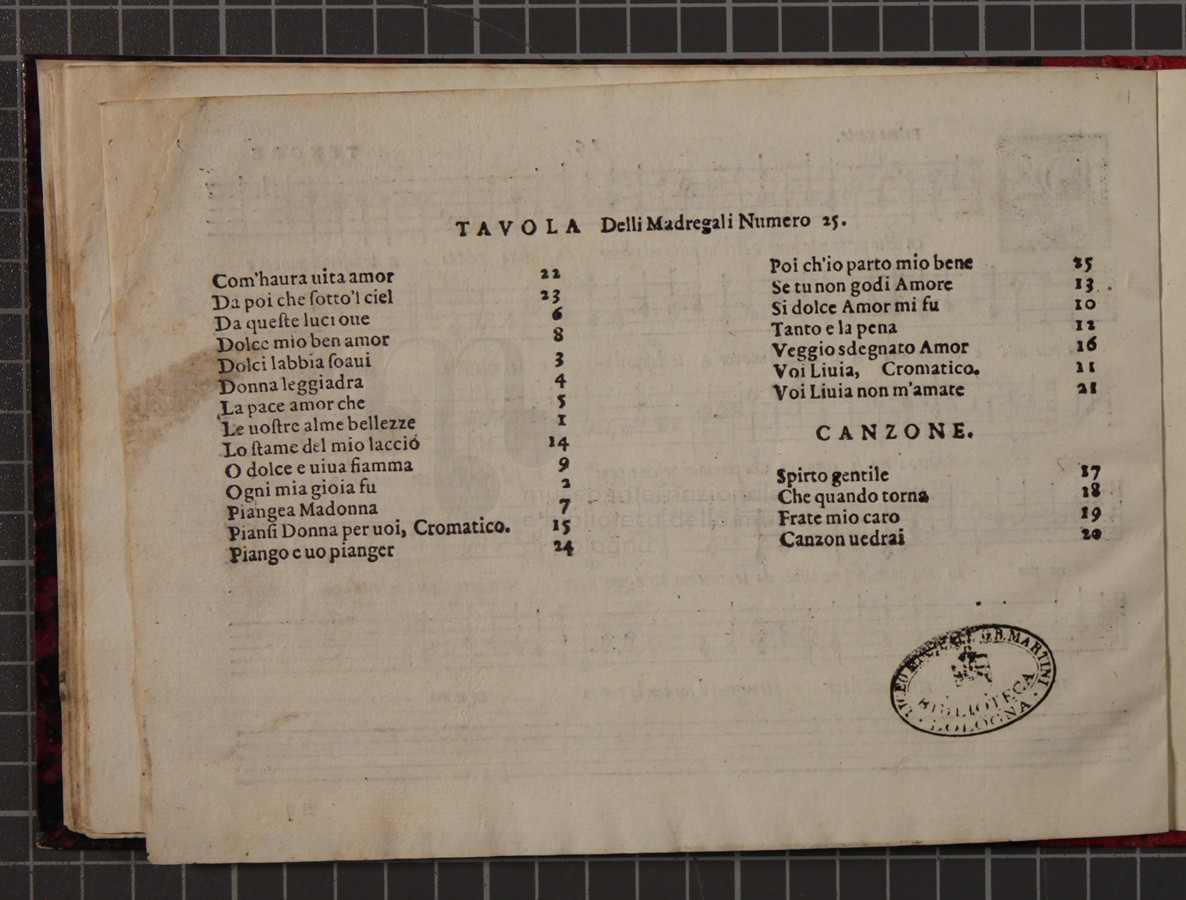 TAVOLA Delli Madregali Numero 25.
Com'haura uita amor 22
Da poi che ſotto'l ciel 23
Da queſte luci oue 6
Dolce mio ben amor 8
Dolci labbia ſoaui 3
Donna leggiadra 4
La pace amor che 5
Le uoſtre alme bellezze 1
Lo ſtame del mio lacciò 14
O dolce e uiua fiamma 9
Ogni mia gioia fu 2
Piangea Madonna 7
Pianſi Donna per uoi, Cromatico. 15
Piango e uo pianger 24
Poi ch'io parto mio bene 25
Se tu non godi Amore 13
Si dolce Amor mi fu 10
Tanto e la pena 12
Veggio sdegnato Amor 16
Voi Liuia, Cromatico. 11
Voi Liuia non m'amate 21
CANZONE.
Spirto gentile 17
Che quando torna 18
Frate mio caro 19
Canzon uedrai 20
G.B. MARTINI
BIBLIOTECA
BOLOGNA